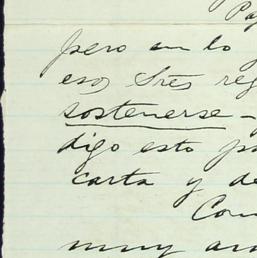 Pa
pero en lo
esos tres reg
sostenerse -
digo esto pa
carta y de
Com
muy am